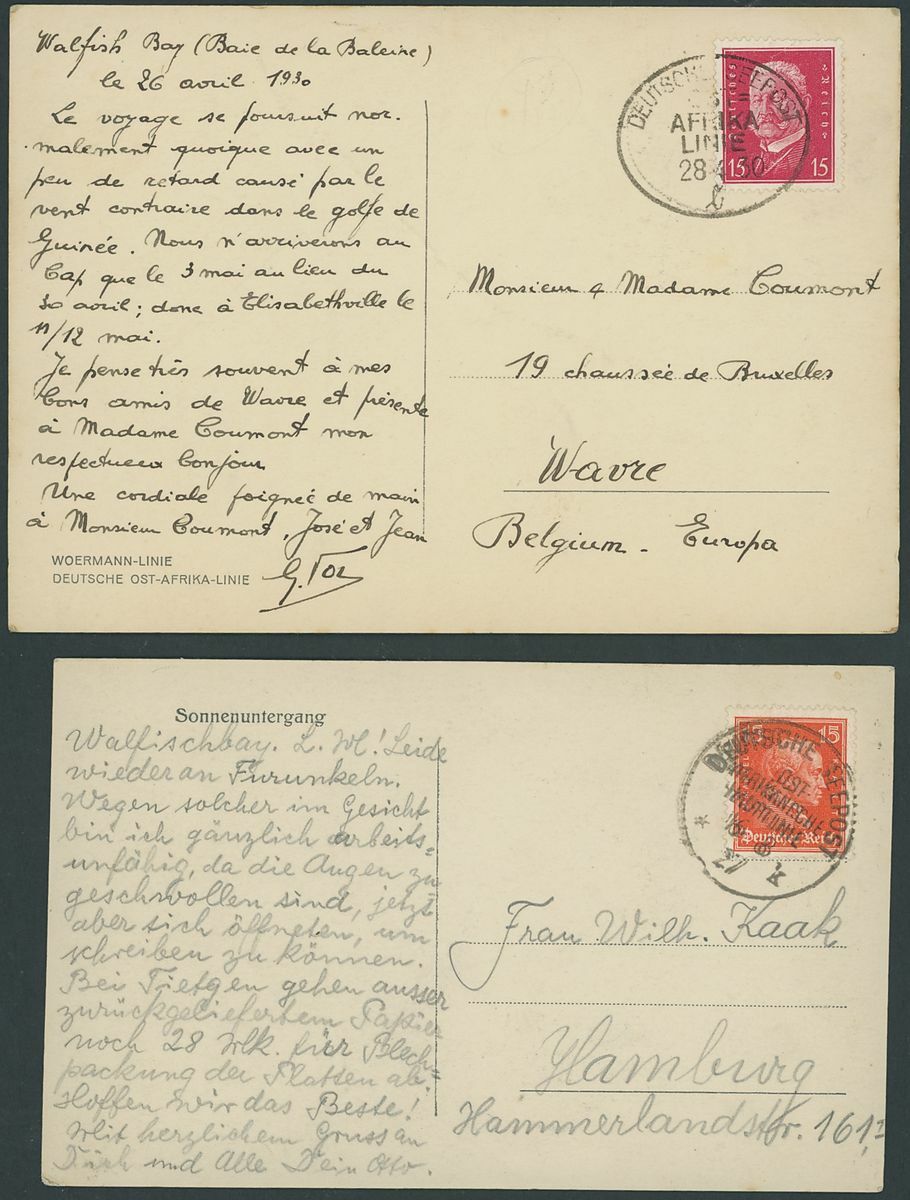 Walfish Bay (Baie de la Baleine)
le 26 avril 1930
Le voyage se poursuit nor-
malement quoique avec un
peu de retard causé par le
vent contraire dans le golfe de
Guinée. Nous n'arriverons au
Cap que le 3 mai au lieu du
30 avril; donc à Elisabethville le
11/12 mai.
Je pense très souvent à mes
bons amis de Wavre et présente
à Madame Coumont mon
respectueux bonjour
Une cordiale poignée de main
à Monsieur Coumont, José et Jean
WOERMANN-LINIE
DEUTSCHE OST-AFRIKA-LINIE
DEUTSCHE SEEPOST
OST-
AFRIKA
LINIE
28.4.30
15 15
Monsieur & Madame Coumont
19 chaussée de Bruxelles
Wavre
Belgium - Europa
Sonnenuntergang
Walfischbay. L. M! Leide
wieder an Furunkeln.
Wegen solcher im Gesicht
bin ich gänzlich arbeits=
unfähig, da die Augen zu
geschwollen sind, jetzt
aber sich öffneten, um
schreiben zu können.
Bei Tietgen gehen ausser
zurückgeliefertem Papier
noch 28 Mk. für Blech=
packung der Platten ab.
Hoffen wir das Beste!
Mit herzlichem Gruss an
Dich und Alle Dein Otto.
15 15
Deutsches Reich
DEUTSCHE SEEPOST
OST-
AFRIKANISCHE
HAUPTLINIE
27 k
Frau Wilh. Kaak
Hamburg
Hammerlandstr. 161,I